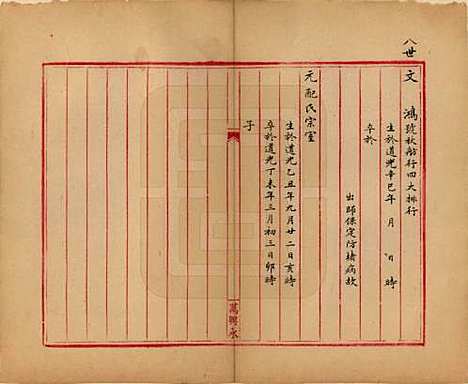 八世
文 鴻 號秋舫行四大排行
生於道光辛巳年 月 日 時
卒於
出師保定防堵病故
元配氏宗室
生於道光乙丑年九月廿二日亥時
卒於道光丁未年三月初三日卯時
子
萬興永